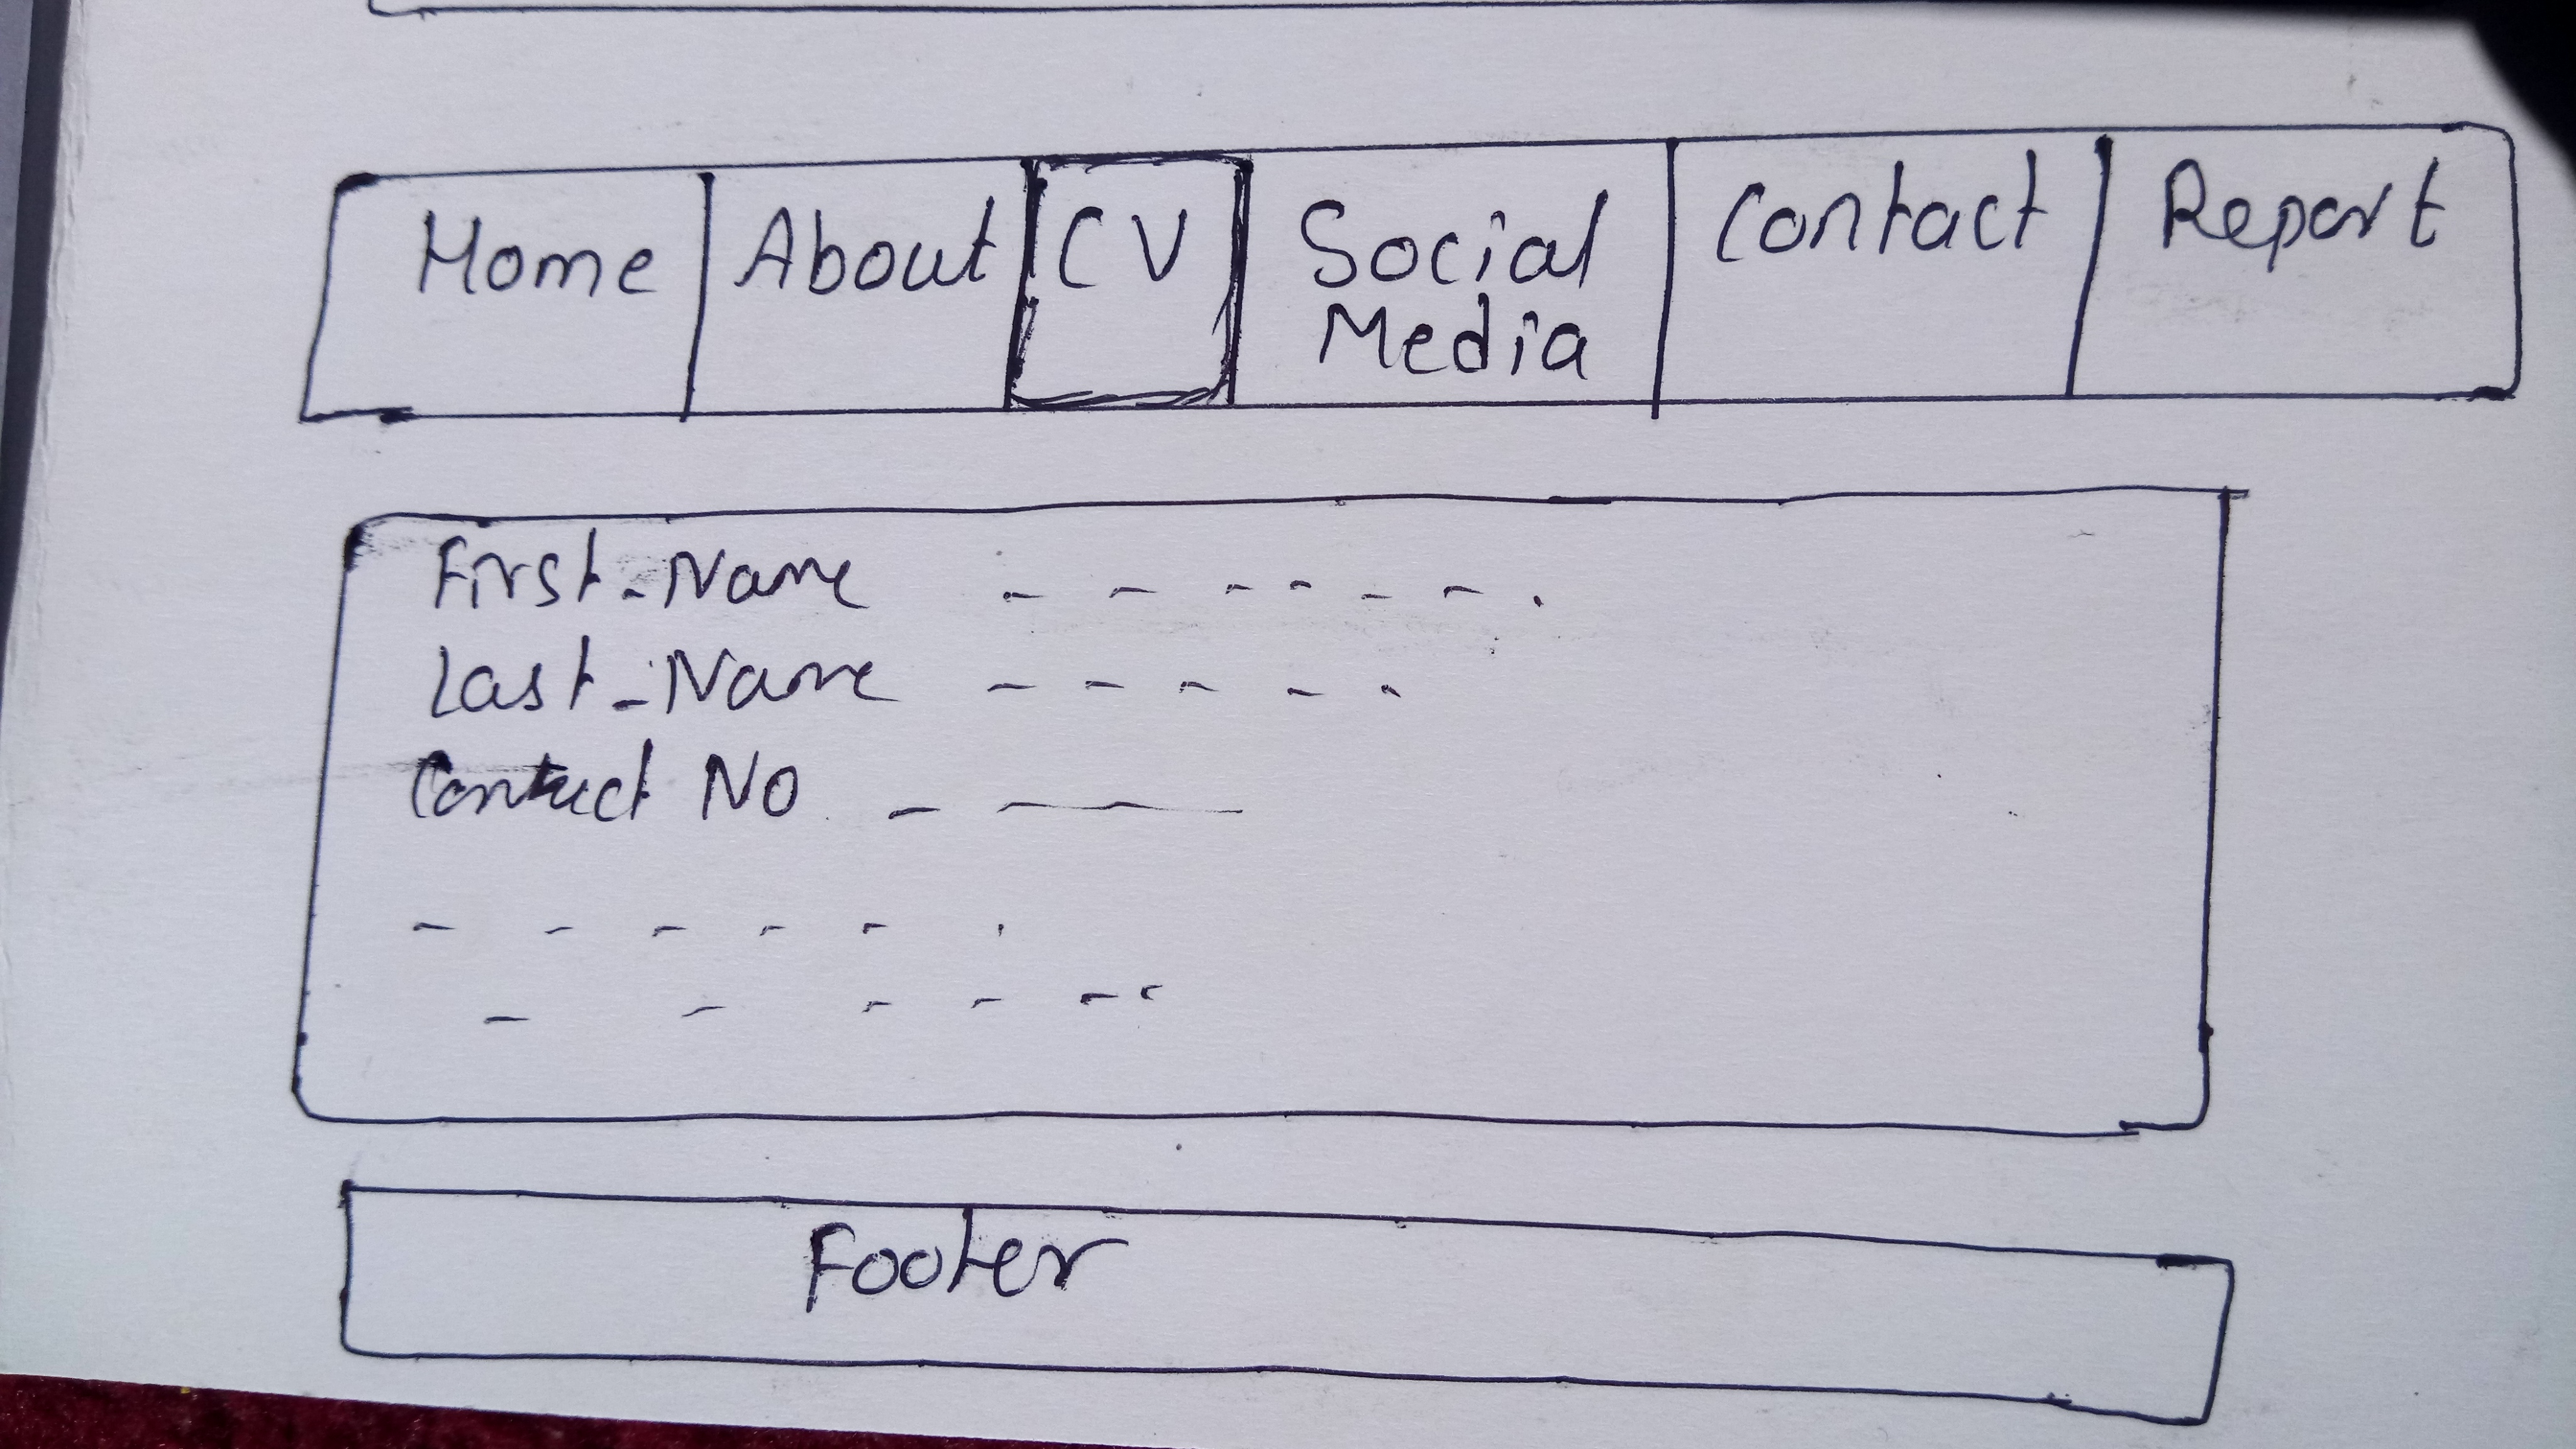 Home About CV Social Media Contact Report
First_Name - - - - - - .
Last_Name - - - - -
Contact No - - - -
- - - - - .
- - - - - -
Footer